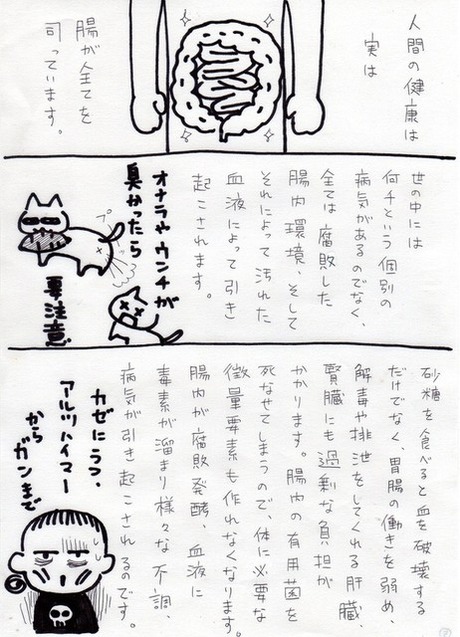 人間の健康は
実は
腸が全てを
司っています。
世の中には
何千という個別の
病気があるのでなく、
全ては腐敗した
腸内環境、そして
それによって汚れた
血液によって引き
起こされます。
オナラやウンチが
臭かったら
要注意
プ〜
砂糖を食べると血を破壊する
だけでなく、胃腸の働きを弱め、
解毒や排泄をしてくれる肝臓、
腎臓にも過剰な負担が
かかります。腸内の有用菌を
死なせてしまうので、体に必要な
微量要素も作れなくなります。
腸内が腐敗発酵、血液に
毒素が溜まり様々な不調、
病気が引き起こされるのです。
カゼにうつ、
アルツハイマー
から
ガンまで